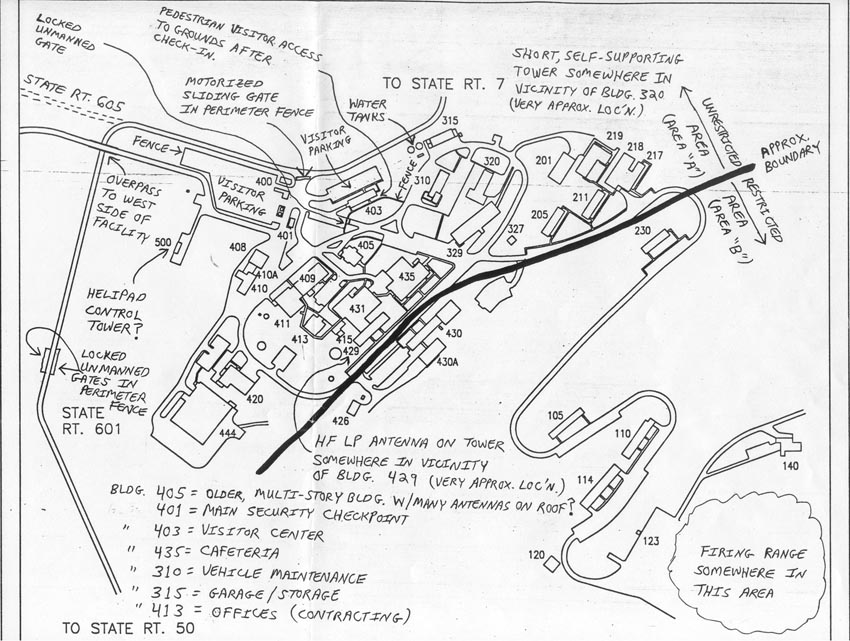 LOCKED
UNMANNED
GATE
PEDESTRIAN VISITOR ACCESS
TO GROUNDS AFTER
CHECK-IN.
SHORT, SELF-SUPPORTING
TOWER SOMEWHERE IN
VICINITY OF BLDG. 320
(VERY APPROX. LOC'N.)
TO STATE RT. 7
MOTORIZED
SLIDING GATE
IN PERIMETER FENCE
STATE RT. 605
WATER
TANKS
315
VISITOR
PARKING
UNRESTRICTED
AREA
(AREA "A")
APPROX.
BOUNDARY
RESTRICTED
AREA
(AREA "B")
FENCE
FENCE
219
218
217
201
320
310
400
403
211
205
327
329
230
OVERPASS
TO WEST
SIDE OF
FACILITY
VISITOR
PARKING
401
405
408
500
410A
410
409
435
HELIPAD
CONTROL
TOWER?
411
431
413
415
429
430
430A
LOCKED
UNMANNED
GATES IN
PERIMETER
FENCE
STATE
RT. 601
420
444
426
105
110
114
140
123
120
HF LP ANTENNA ON TOWER
SOMEWHERE IN VICINITY
OF BLDG. 429 (VERY APPROX. LOC'N.)
BLDG. 405 = OLDER, MULTI-STORY BLDG. W/MANY ANTENNAS ON ROOF?
401 = MAIN SECURITY CHECKPOINT
" 403 = VISITOR CENTER
" 435 = CAFETERIA
" 310 = VEHICLE MAINTENANCE
" 315 = GARAGE/STORAGE
" 413 = OFFICES (CONTRACTING)
FIRING RANGE
SOMEWHERE IN
THIS AREA
TO STATE RT. 50